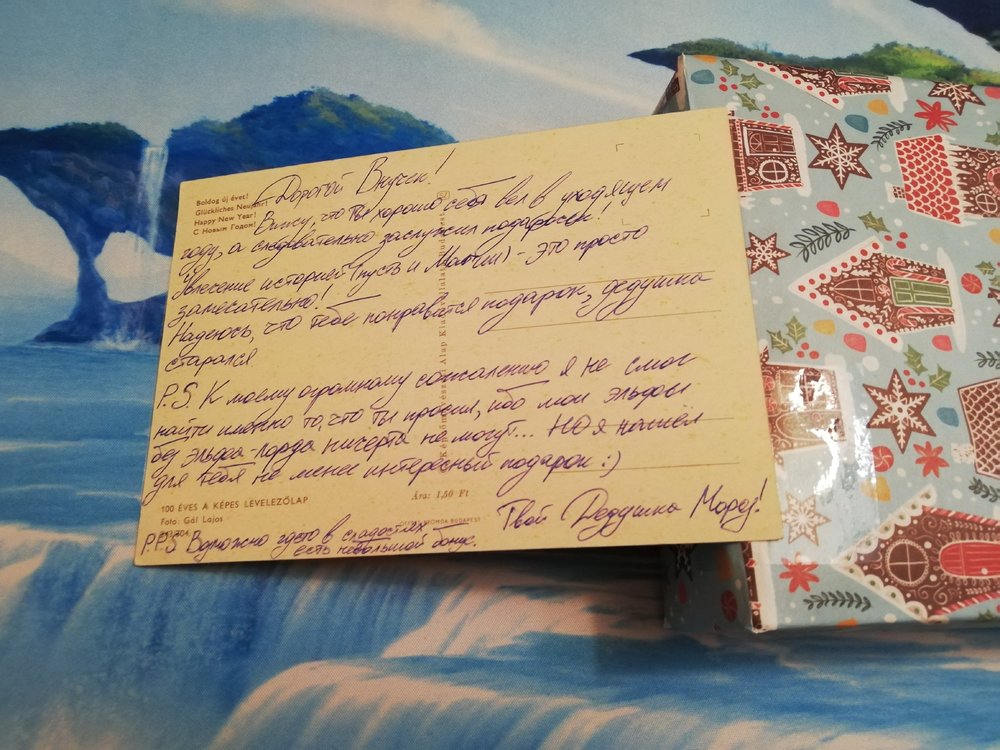 Boldog új évet!
Glückliches Neujahr!
Happy New Year!
С Новым Годом!
Дорогой Внучек!
Вижу, что Ты хорошо себя вёл в уходящем
году, а следовательно заслужил подарок!
Увлечение историей (пусть и ) - это просто
замечательно!
Надеюсь, что тебе понравится подарок, дедушка
старался
P.S. К моему огромному сожалению я не смог
найти именно то, что Ты просил, ибо мои эльфы
без эльфа-лорда ничерта не могут... НО я нашёл
для тебя не менее интересный подарок :)
Твой Дедушка Мороз!
P.P.S Возможно где-то в сладостях
есть небольшой бонус.
100 ÉVES A KÉPES LEVELEZŐLAP
Foto: Gál Lajos
Ára: 1,50 Ft
BUDAPEST
Képzőművészeti Alap